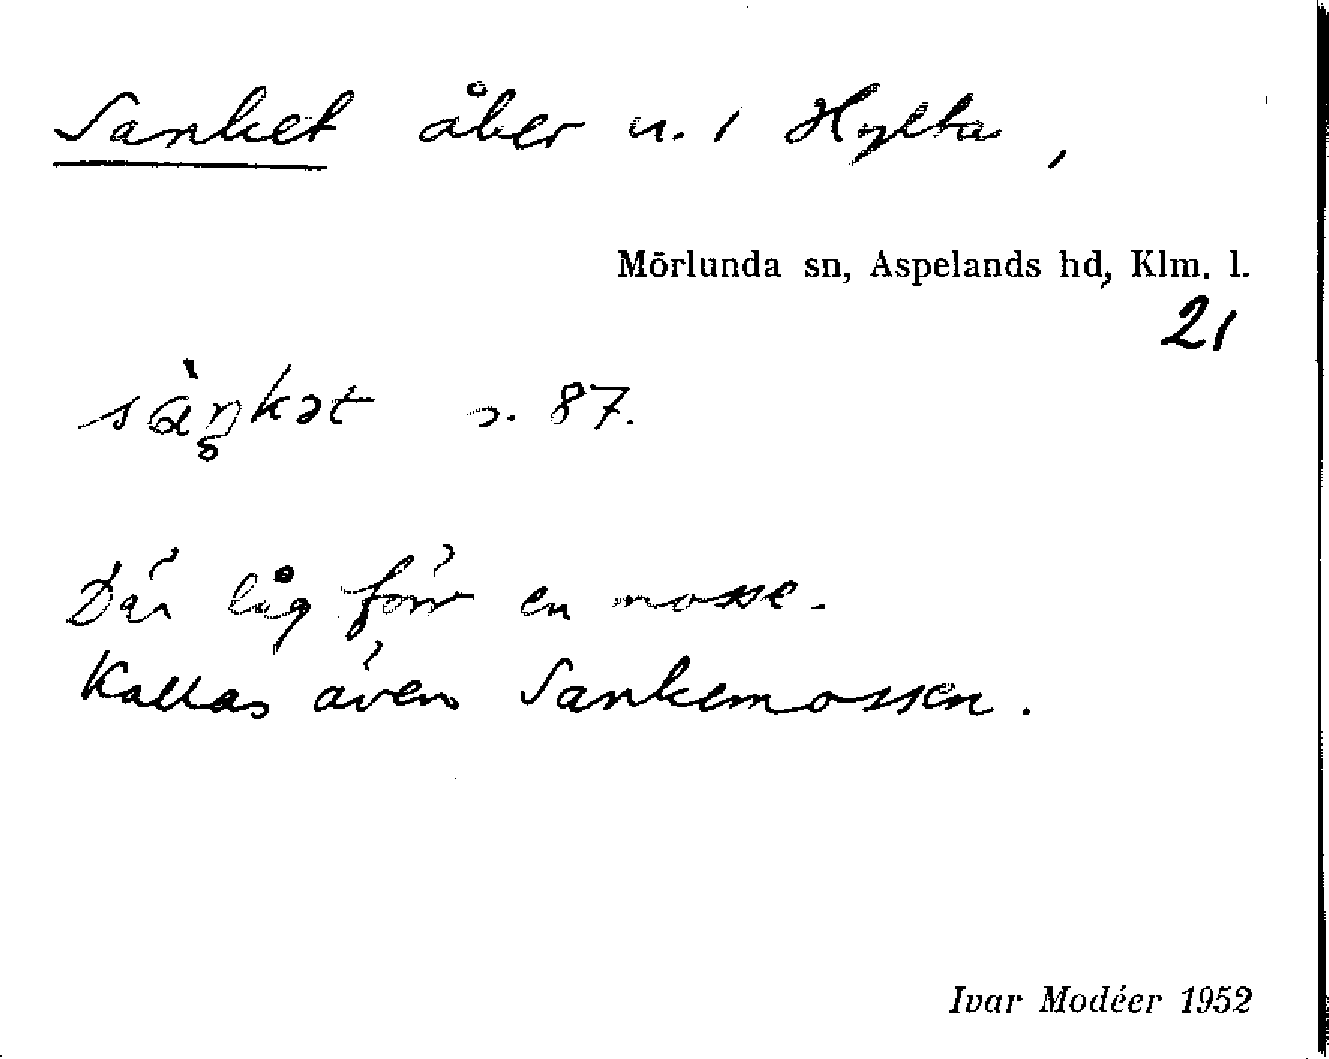 Sanket åker u. 1 Hylta,
Mörlunda sn, Aspelands hd, Klm. l.
21
s. 87.
Där låg förr en mosse.
Kallas även Sankemossen.
Ivar Modéer 1952